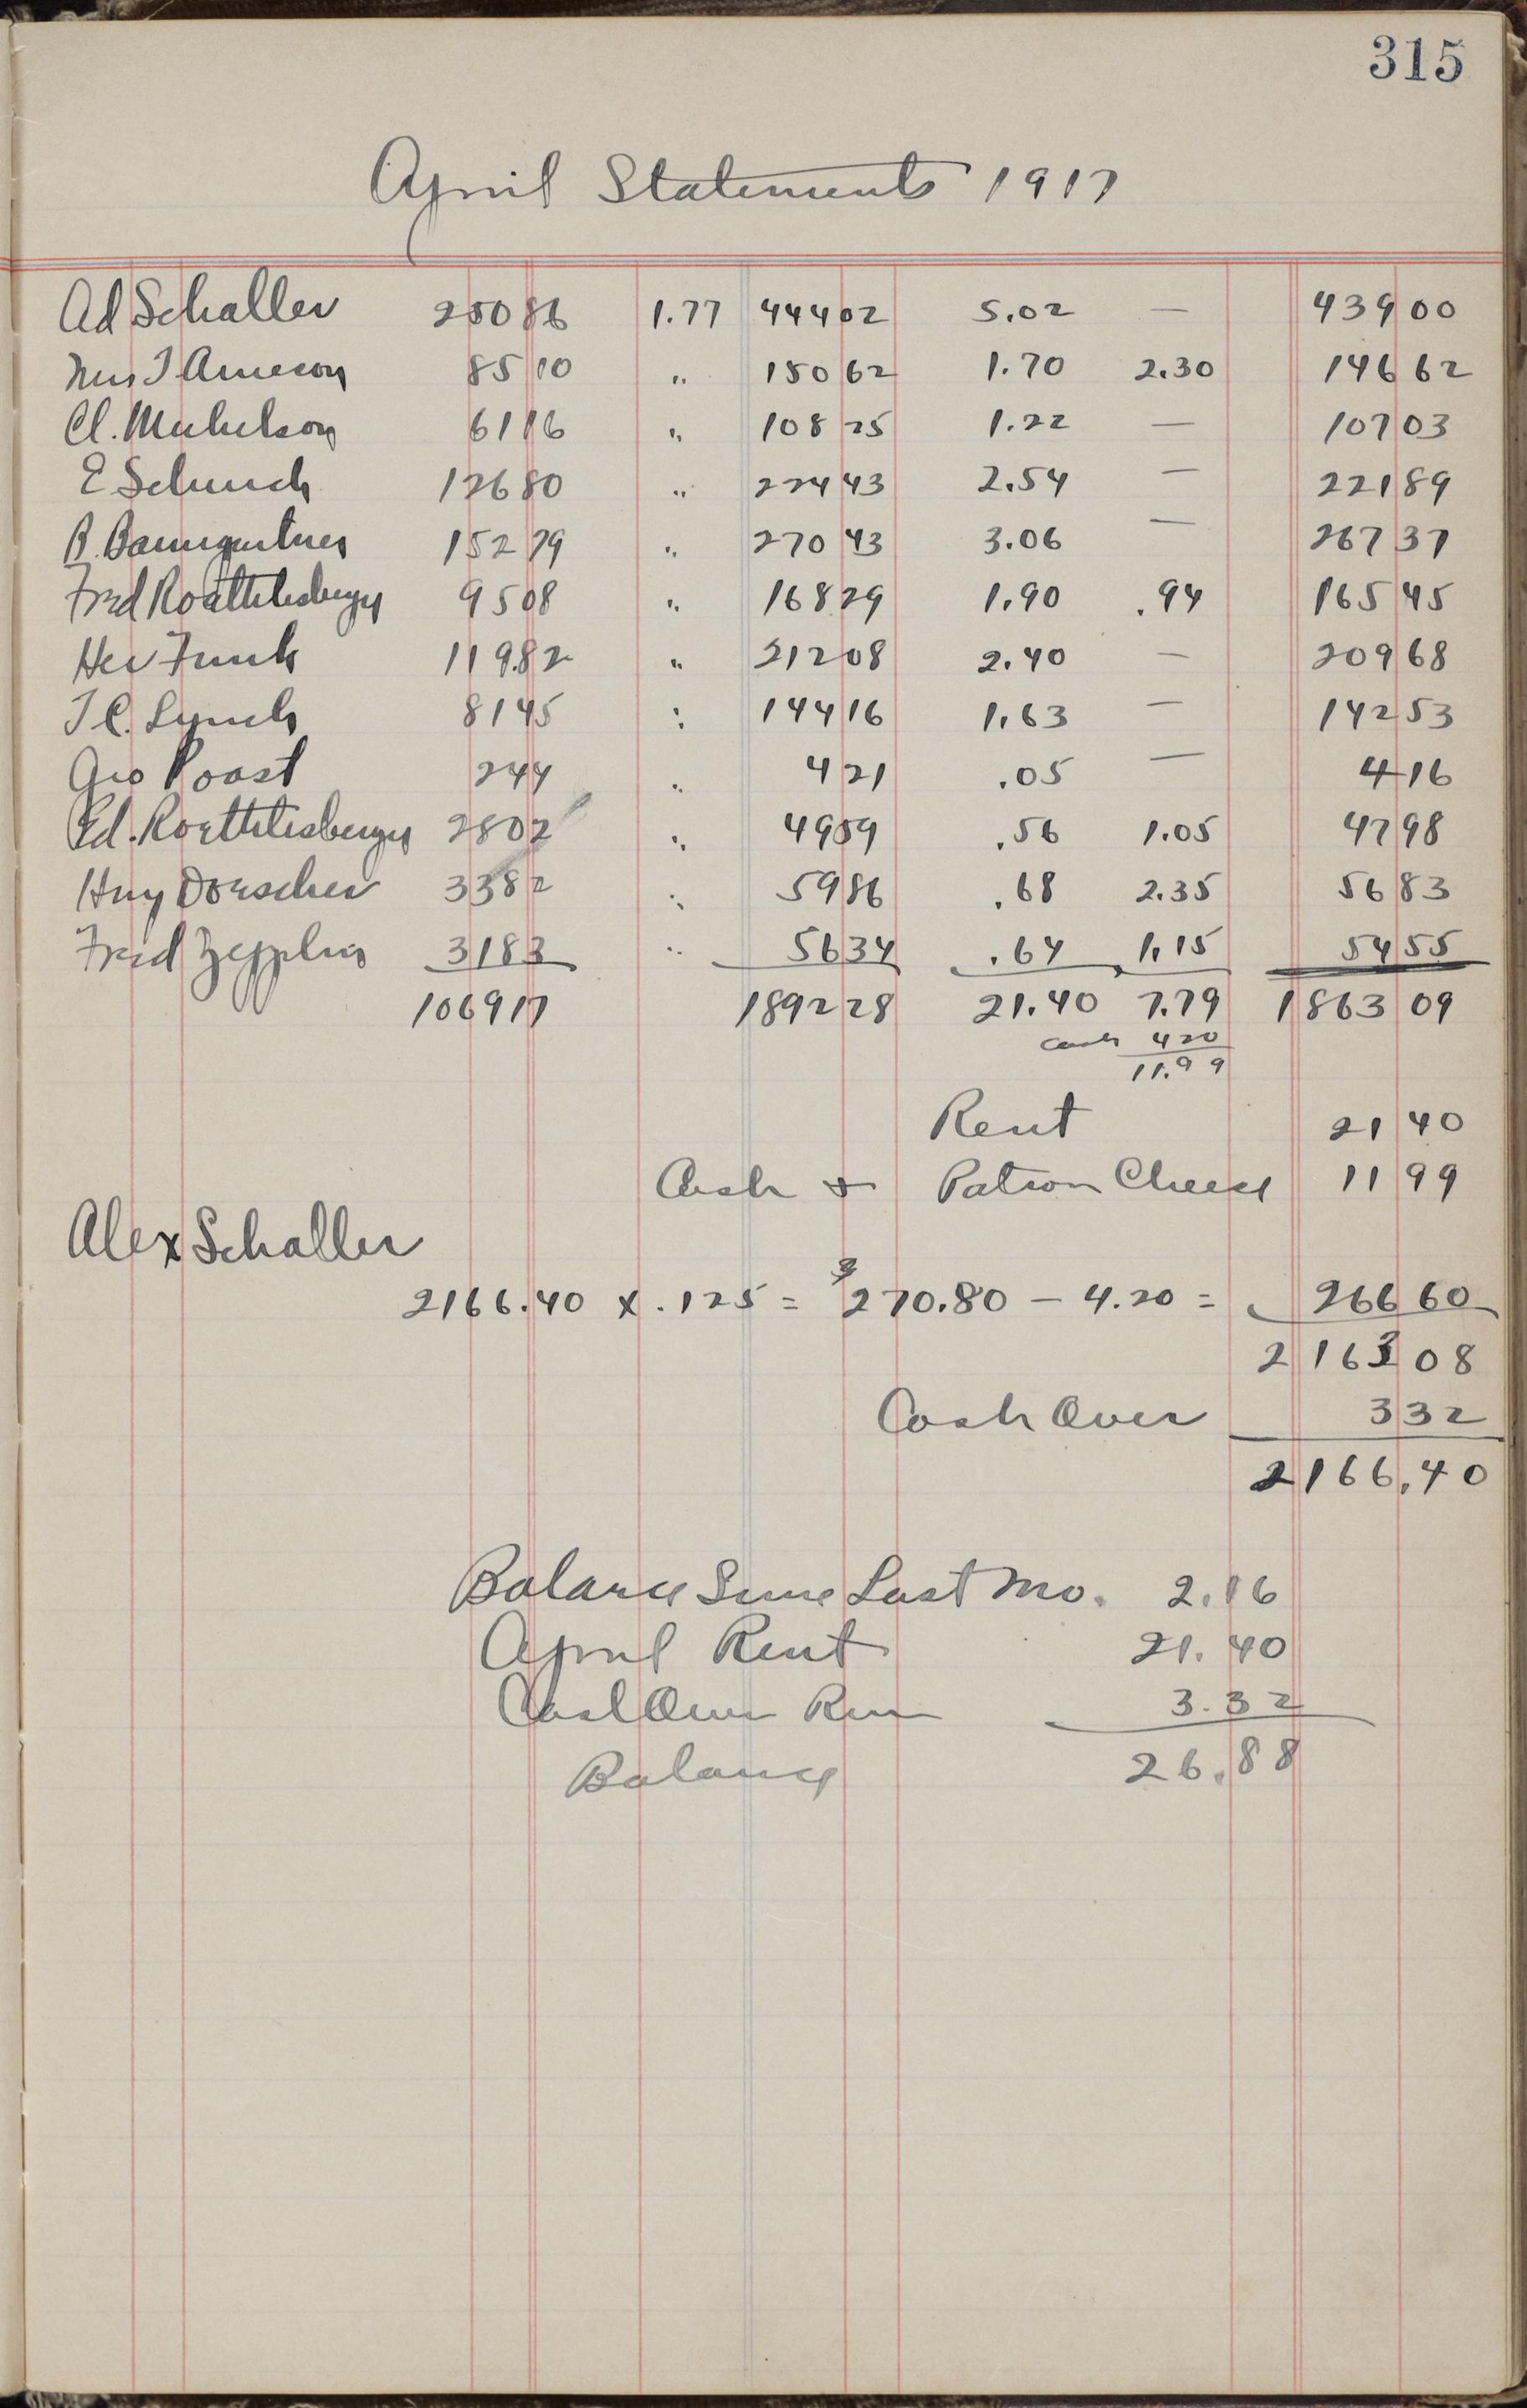 315
April Statements 1917
Ad Schaller 25086 1.77 44402 5.02 — 43900
Mrs T Arneson 8510 " 15062 1.70 2.30 14662
Cl. Michelson 6116 " 10825 1.22 — 10703
E Schuch 12680 " 22443 2.54 — 22189
B. Baumgartner 15279 " 27043 3.06 — 26737
Fred Roethlisberger 9508 " 16829 1.90 .94 16545
Her Funk 119.82 " 21208 2.40 — 20968
T C. Lynch 8145 " 14416 1.63 — 14253
Geo Poast 244 " 421 .05 — 416
Ed. Roethlisberger 2802 " 4959 .56 1.05 4798
Hny Dorscher 3382 " 5986 .68 2.35 5683
Fred Zepplin 3183 " 5634 .64 1.15 5455
106917 189228 21.40 7.79 186309
cash 420
11.99
Rent 2140
Cash & Patron Cheese 1199
Alex Schaller
2166.40 x .125 = $270.80 - 4.20 = 26660
216308
Cash Over 332
2166.40
Balance Since Last Mo. 2.16
April Rent 21.40
Cash Over Run 3.32
Balance 26.88